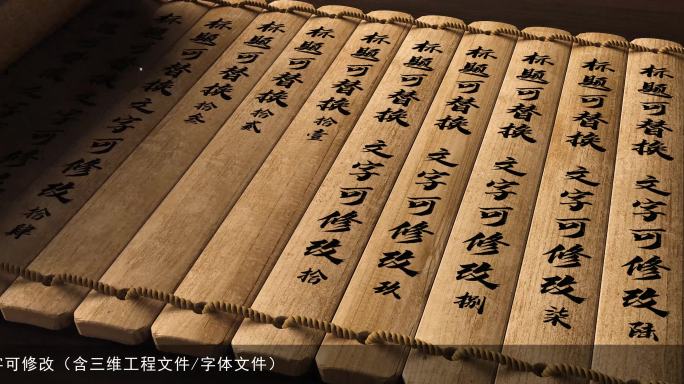 标题可替换 文字可修改 陆
标题可替换 文字可修改 柒
标题可替换 文字可修改 捌
标题可替换 文字可修改 玖
标题可替换 文字可修改 拾
标题可替换 拾壹
标题可替换 拾贰
标题可替换 拾叁
标题可替换 文字可修改 拾肆
字可修改（含三维工程文件/字体文件）